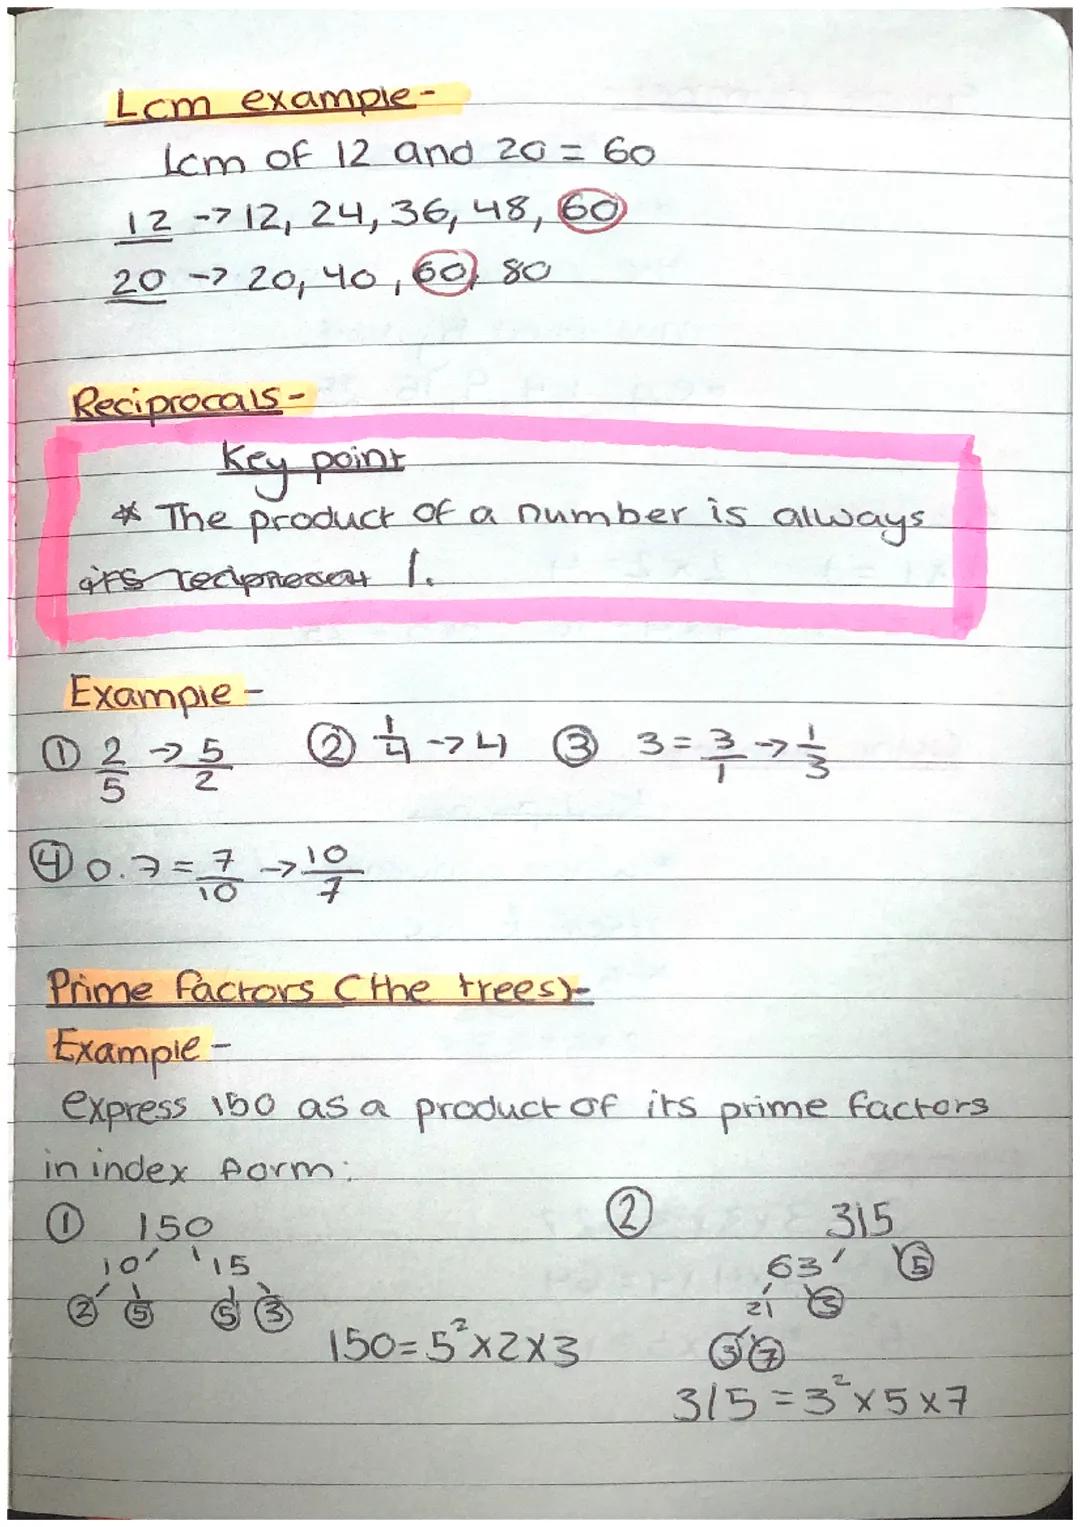 Lcm example-
Lcm of 12 and 20 = 60
12 -> 12, 24, 36, 48, 60
20 -> 20, 40, 60, 80
Reciprocals-
Key point
* The product of a number is always
its reciprocal 1.
Example-
① 2/5 -> 5/2 ② 1/4 -> 4 ③ 3 = 3/1 -> 1/3
④ 0.7 = 7/10 -> 10/7
Prime factors (the trees)-
Example-
express 150 as a product of its prime factors
in index form:
① 150 ② 315
10 15 63 5
2 5 5 3 21 3
150 = 5² x 2 x 3 3 7
315 = 3² x 5 x 7